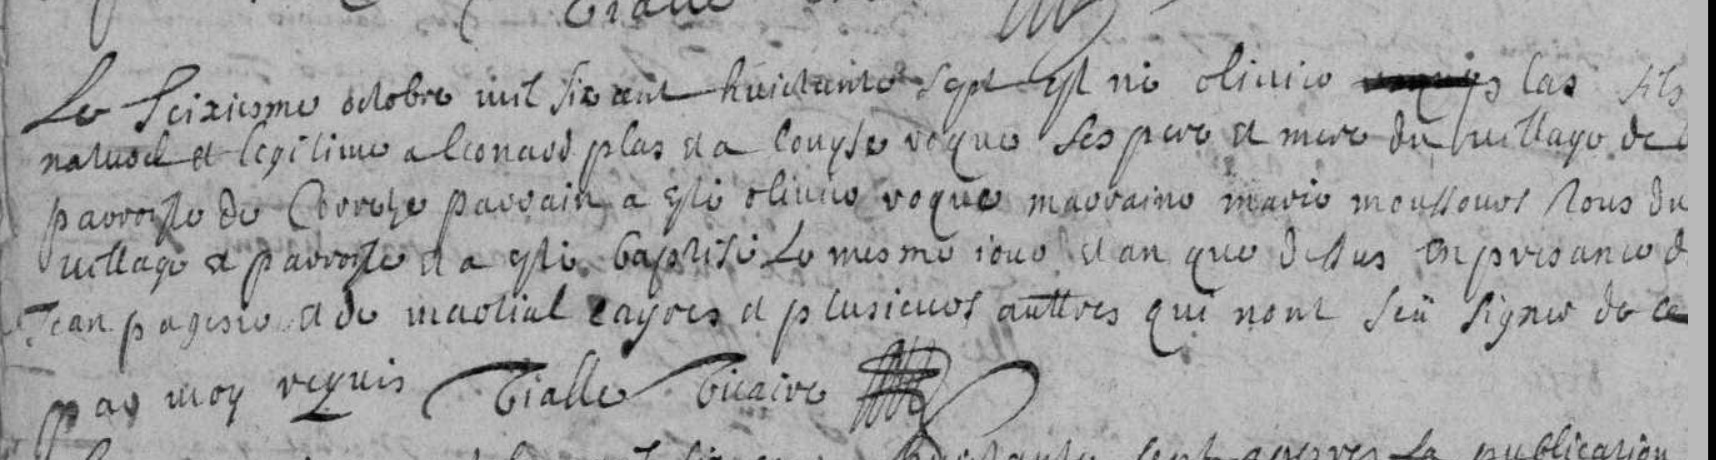 Vialle
Le seixiesme octobre mil six cent huictante sept est né olivie las fils
naturel et legitime a leonard plas et a louyse roque ses pere et mere du village de
parroisse de Correze parrain a esté olivie roque marraine marie moussours tous du
village et parroisse et a esté baptisé le mesme jour et an que dessus en presance d
Jean pagesie et de martial cayres et plusieurs auttres qui nont seü signer de ce
par moy requis Vialle Vicaire
huictante sept apprès la publication